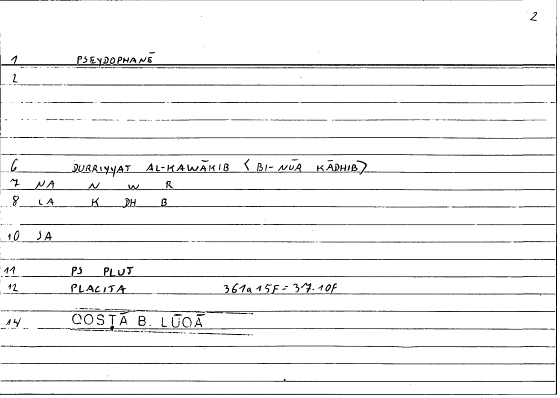 2
1 PSEYDOPHANĒ
2
6 DURRIYYAT AL-KAWĀKIB < BI-NŪR KĀDHIB >
7 NA N W R
8 LA K DH B
10 SA
11 PS PLUT
12 PLACITA 361a15F = 37.10f
14 QOSṬĀ B. LŪQĀ